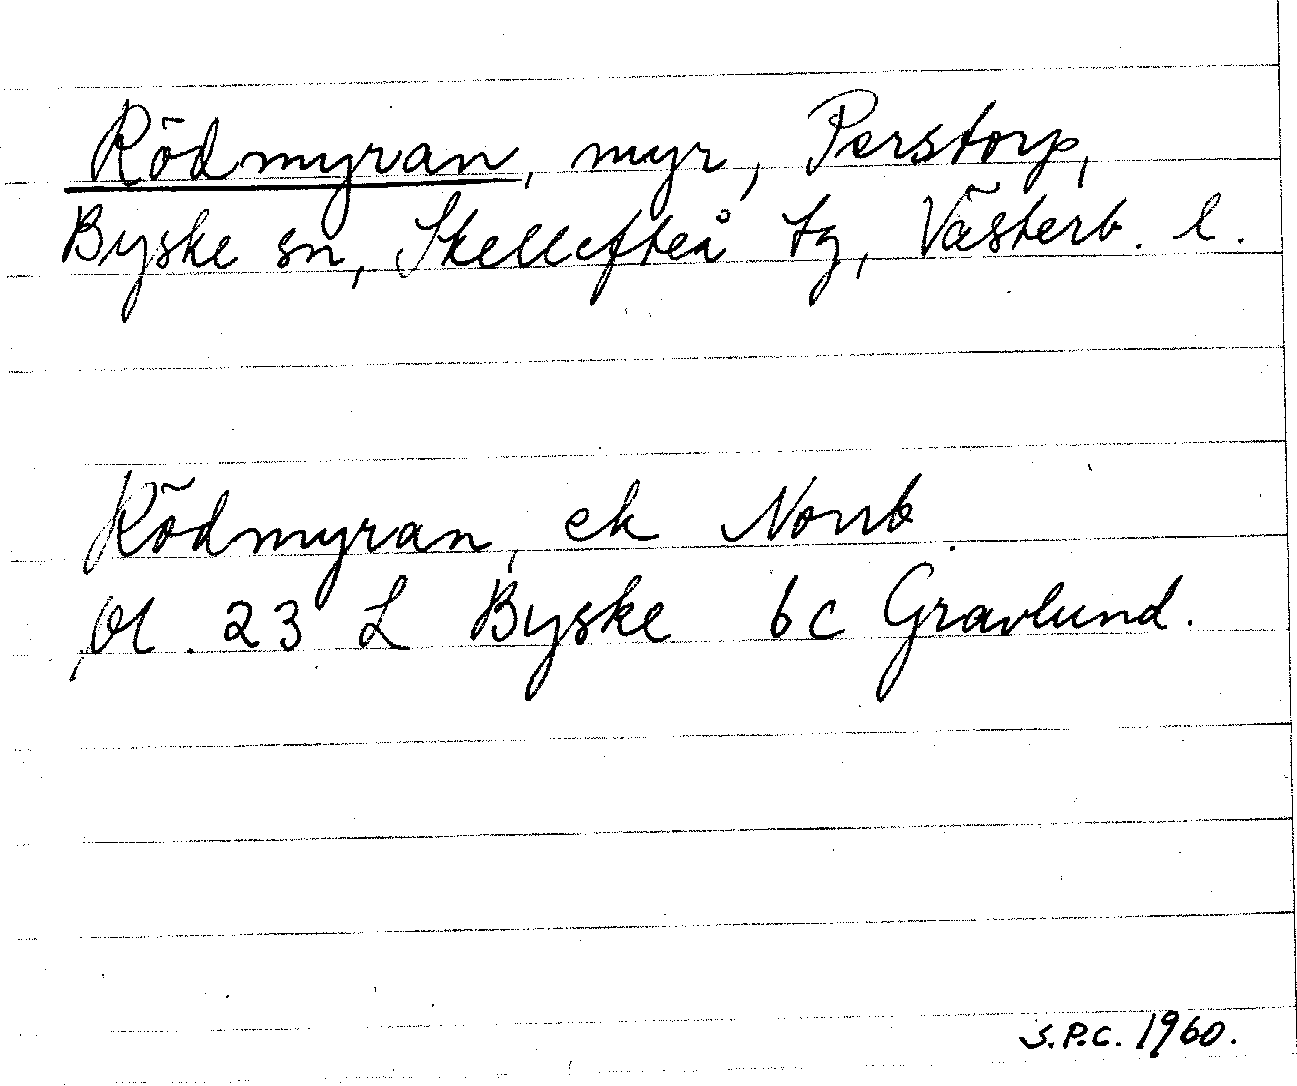 Rödmyran, myr, Perstorp,
Byske sn, Skellefteå tg, Västerb. l.
Rödmyran, ek Norrb.
bl. 23 L Byske 6c Gravlund.
S.P.C. 1960.